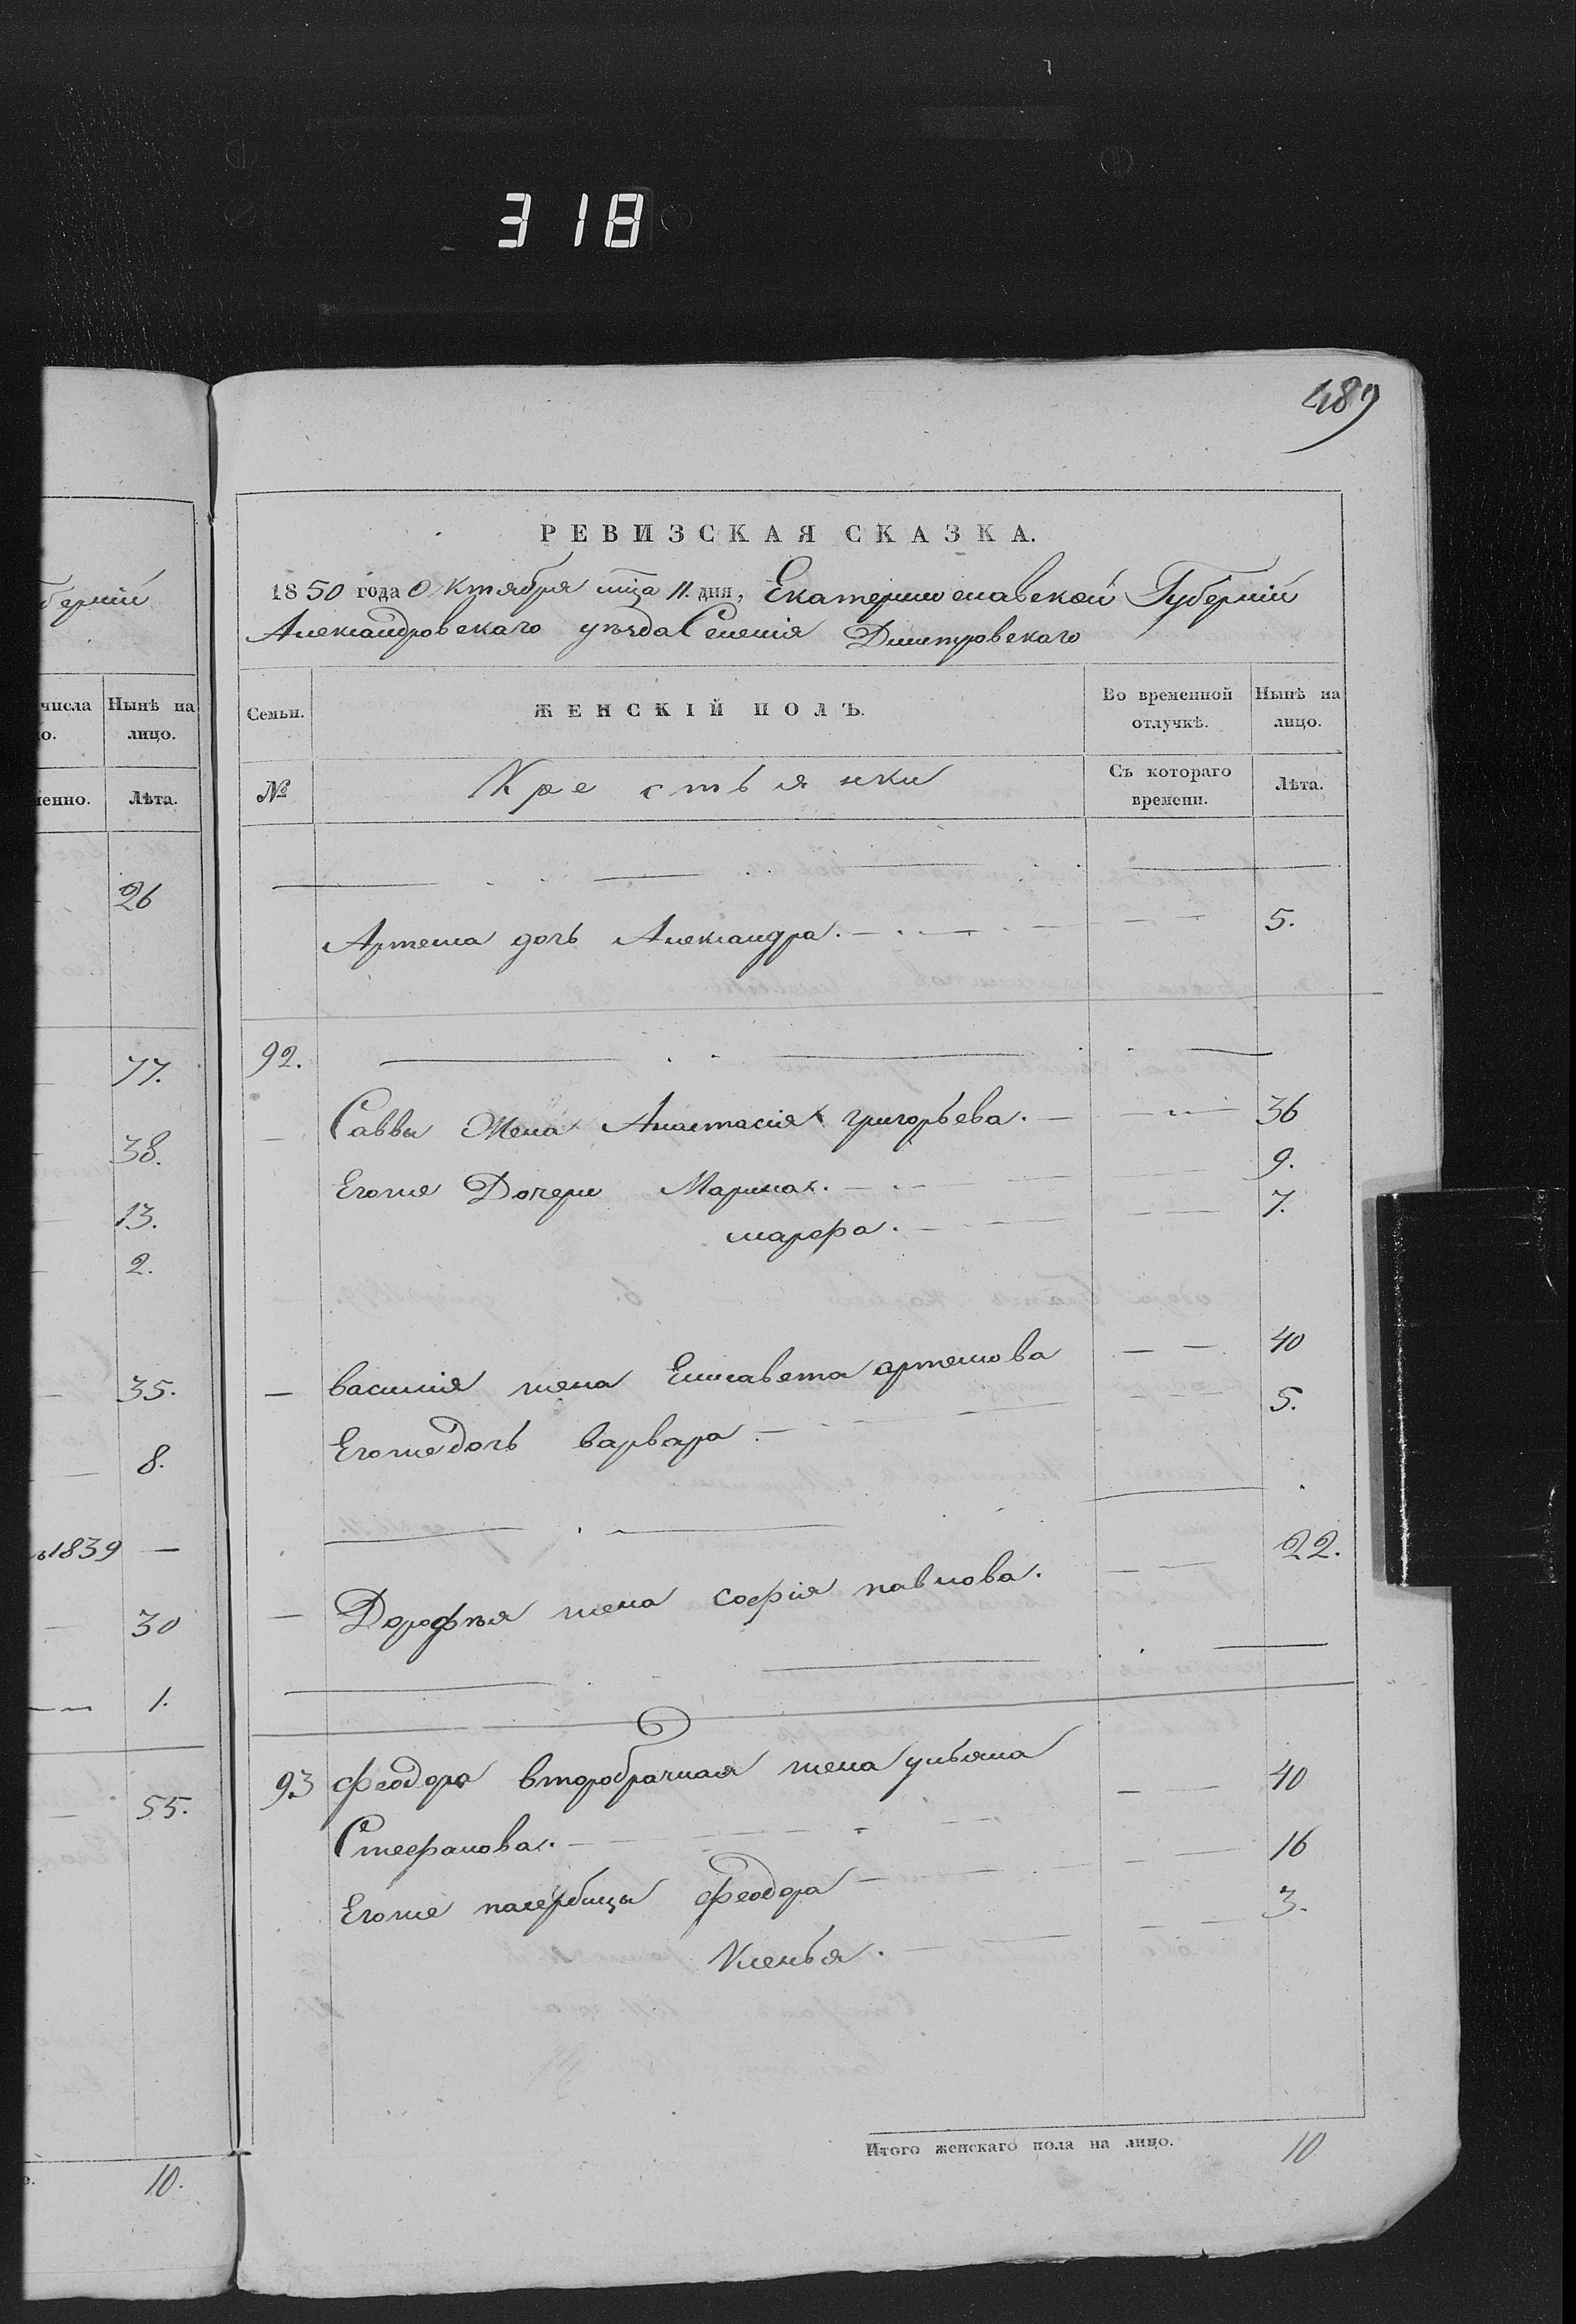 318
489
берніи
числа Нынѣ на
о. лицо.
менно. Лѣта.
26
77.
38.
13.
2.
35.
8.
1839 —
30
1.
55.
10.
РЕВИЗСКАЯ СКАЗКА.
1850 года Октября мца 11. дня, Екатеринославской Губерніи
Александровскаго уѣзда Селенія Дмитровскаго
Семьи. ЖЕНСКІЙ ПОЛЪ. Во временной отлучкѣ. Нынѣ на лицо.
№ Крестьянки Съ котораго времени. Лѣта.
Артема дочь Александра. 5.
92.
— Саввы Жена Анастасія григорьева. 36
Егоже Дочери Марина. 9.
марфа. 7.
— василия жена Елисавета артемова 40
Егоже дочь варвара. 5.
— Дорофѣя жена софія павлова. 22.
93 Феодора второбрачная жена ульяна 40
Стефанова.
Егоже пасербицы Феодора 16
Ксенья. 3.
Итого женскаго пола на лицо. 10